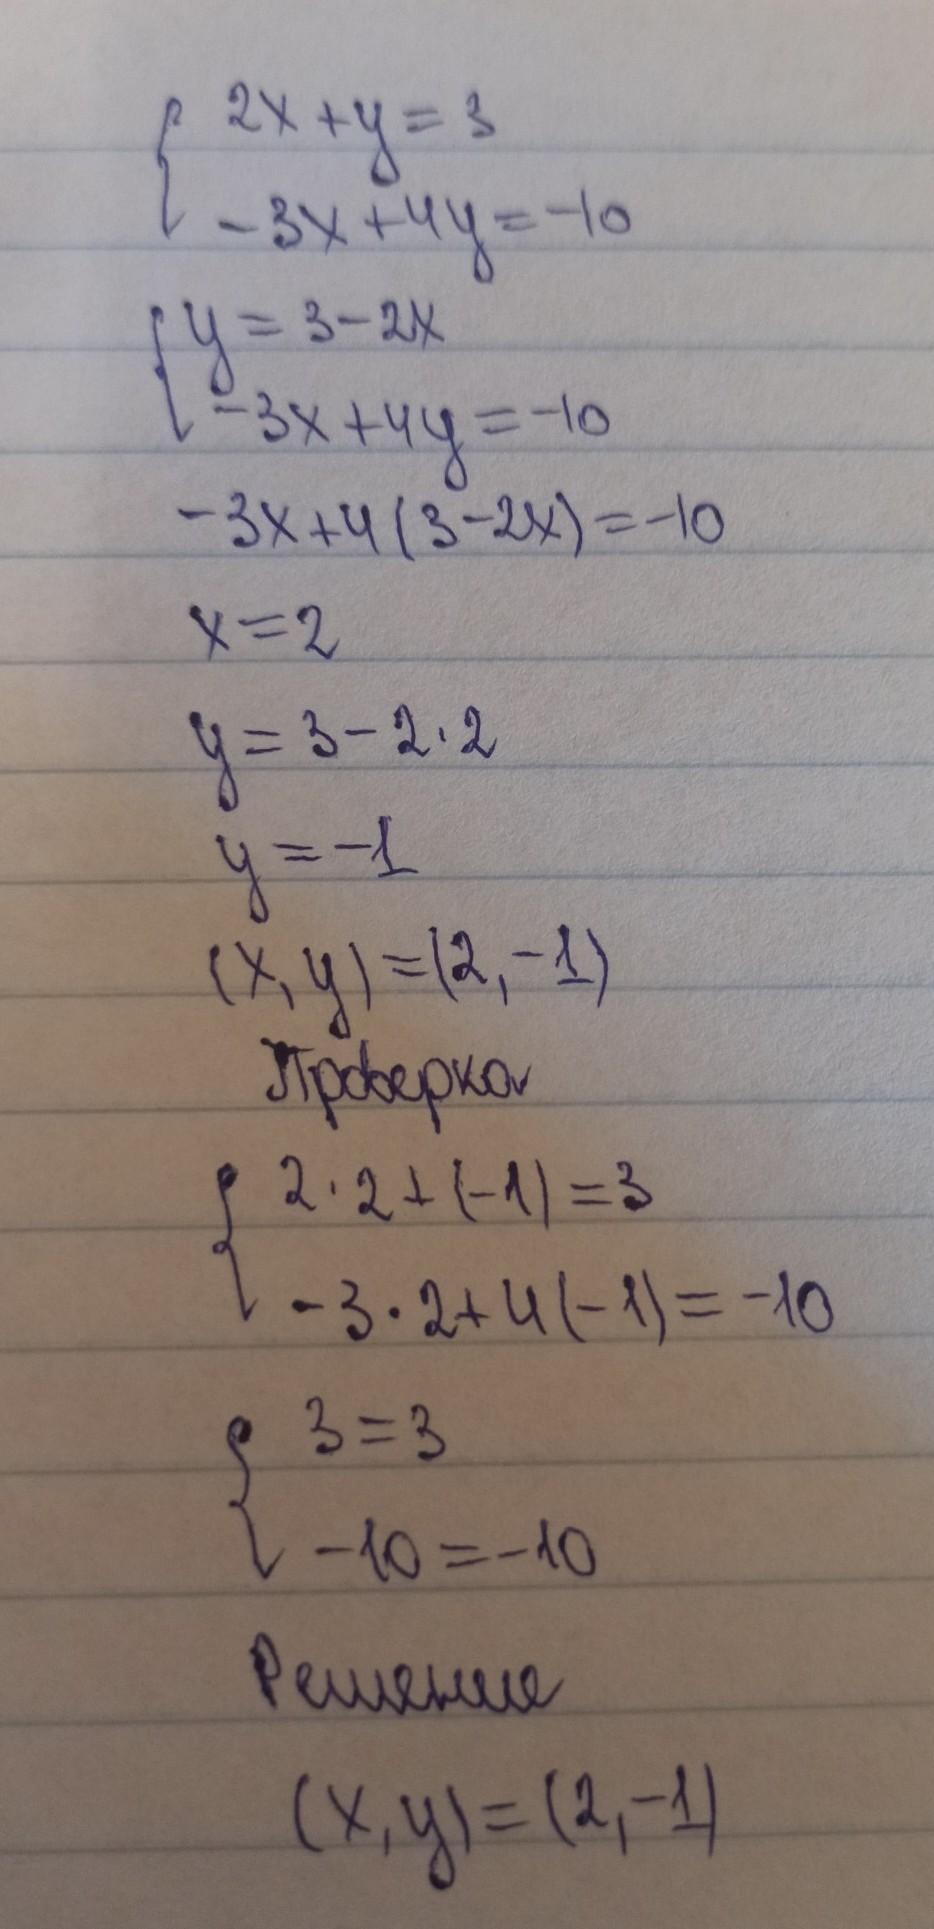 2x+y=3
-3x+4y=-10
y=3-2x
-3x+4y=-10
-3x+4(3-2x)=-10
x=2
y=3-2·2
y=-1
(x,y)=(2,-1)
Проверка
2·2+(-1)=3
-3·2+4(-1)=-10
3=3
-10=-10
Решение
(x,y)=(2,-1)